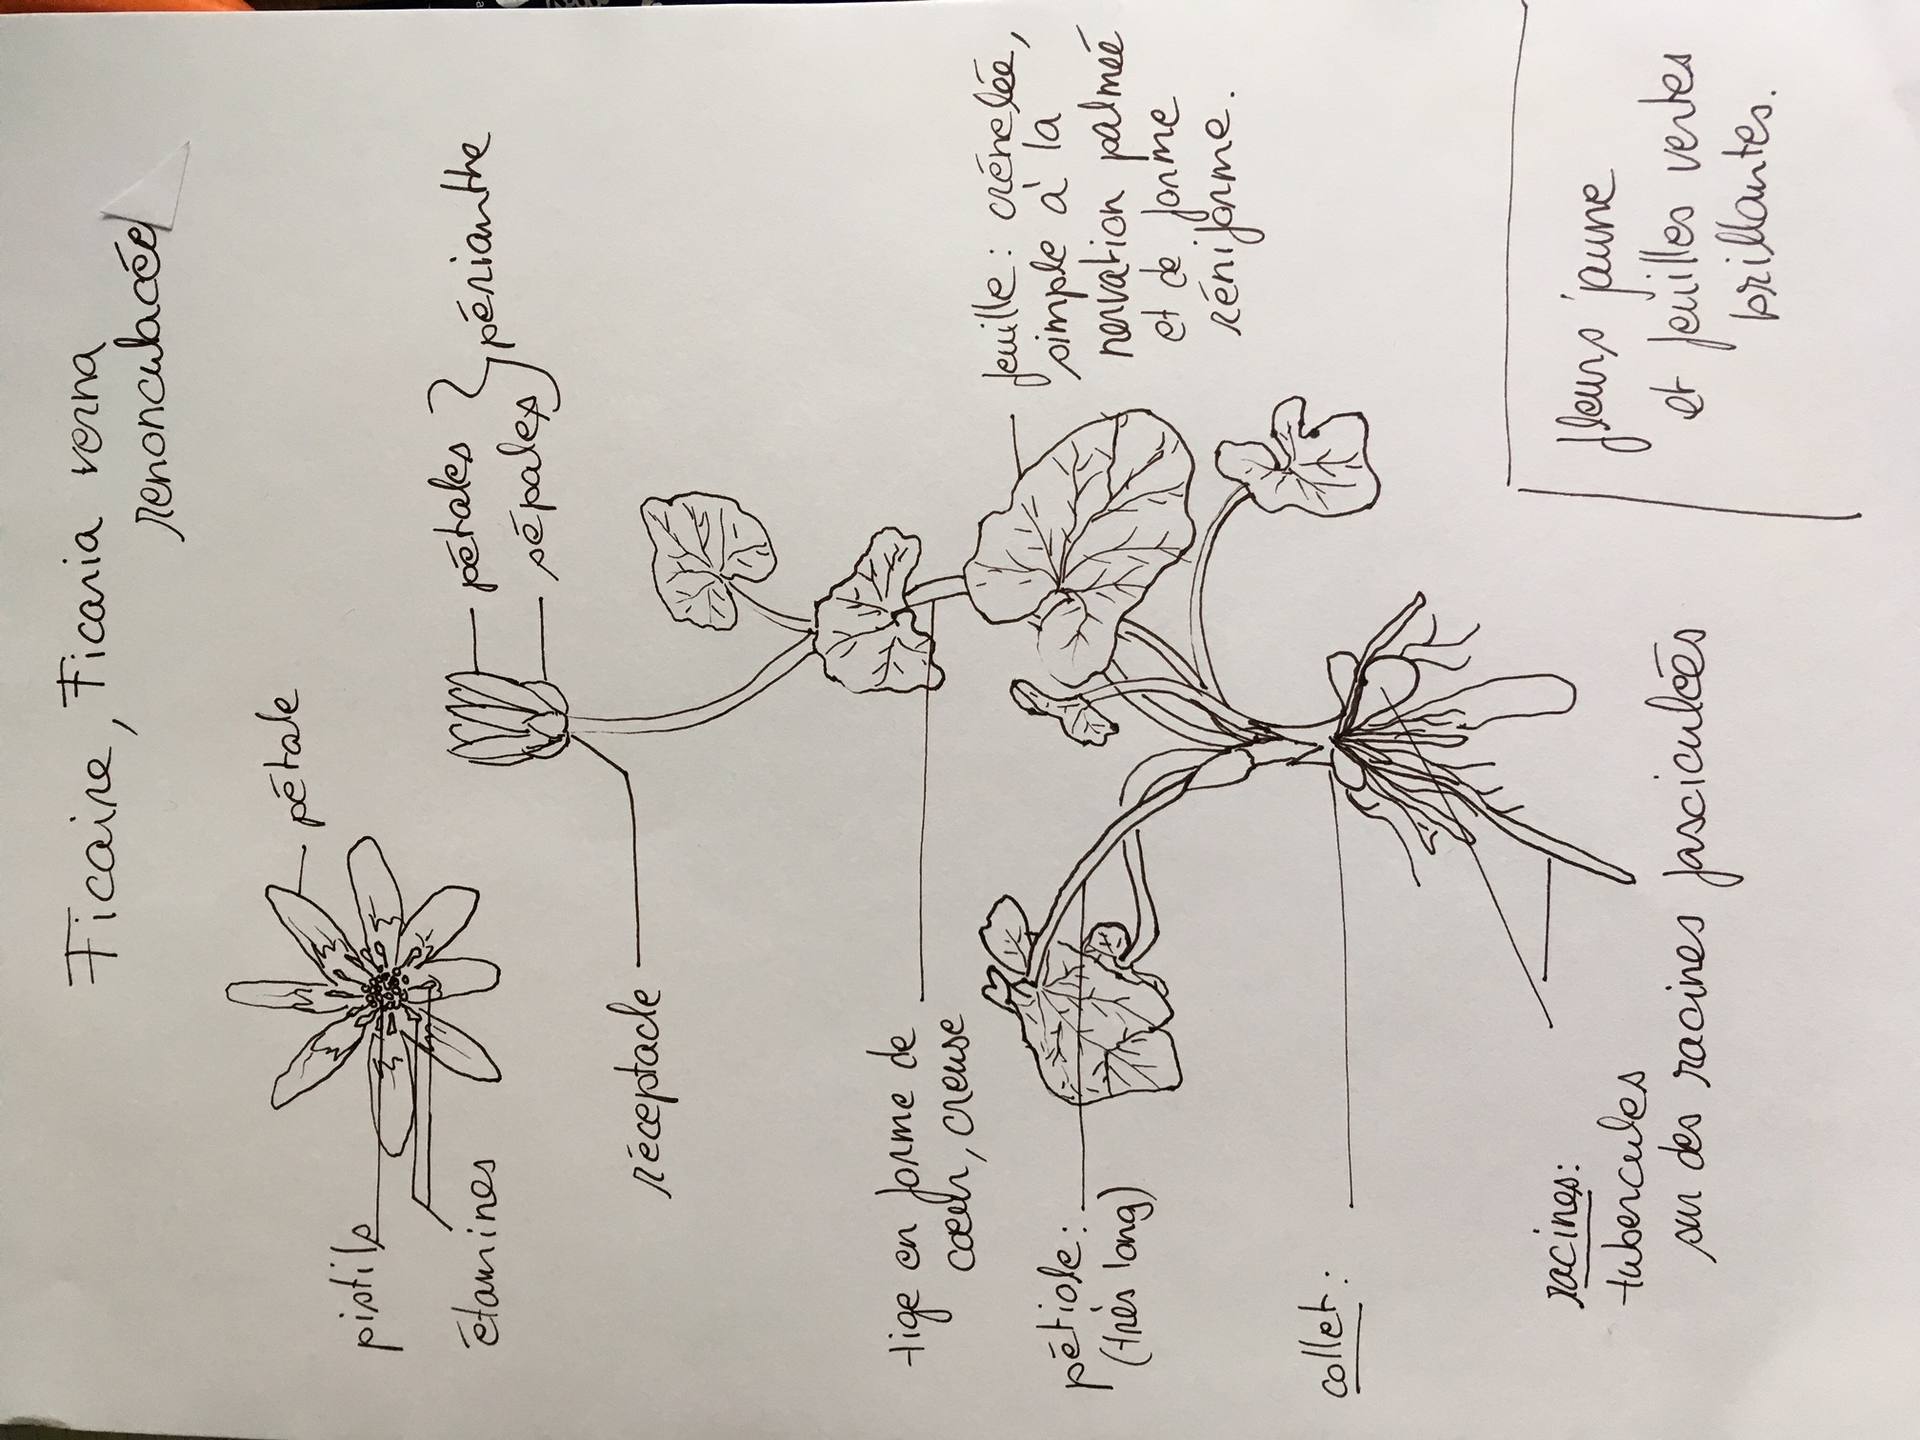 Ficaire, Ficaria verna
renonculacée
pétale
pistils
étamines
pétales
sépales
périanthe
réceptacle
feuille : crénelée,
simple à la
nervation palmée
et de forme
réniforme.
tige en forme de
cœur, creuse
pétiole :
(très long)
collet :
racines :
tubercules
sur des racines fasciculées
fleurs jaune
et feuilles vertes
brillantes.